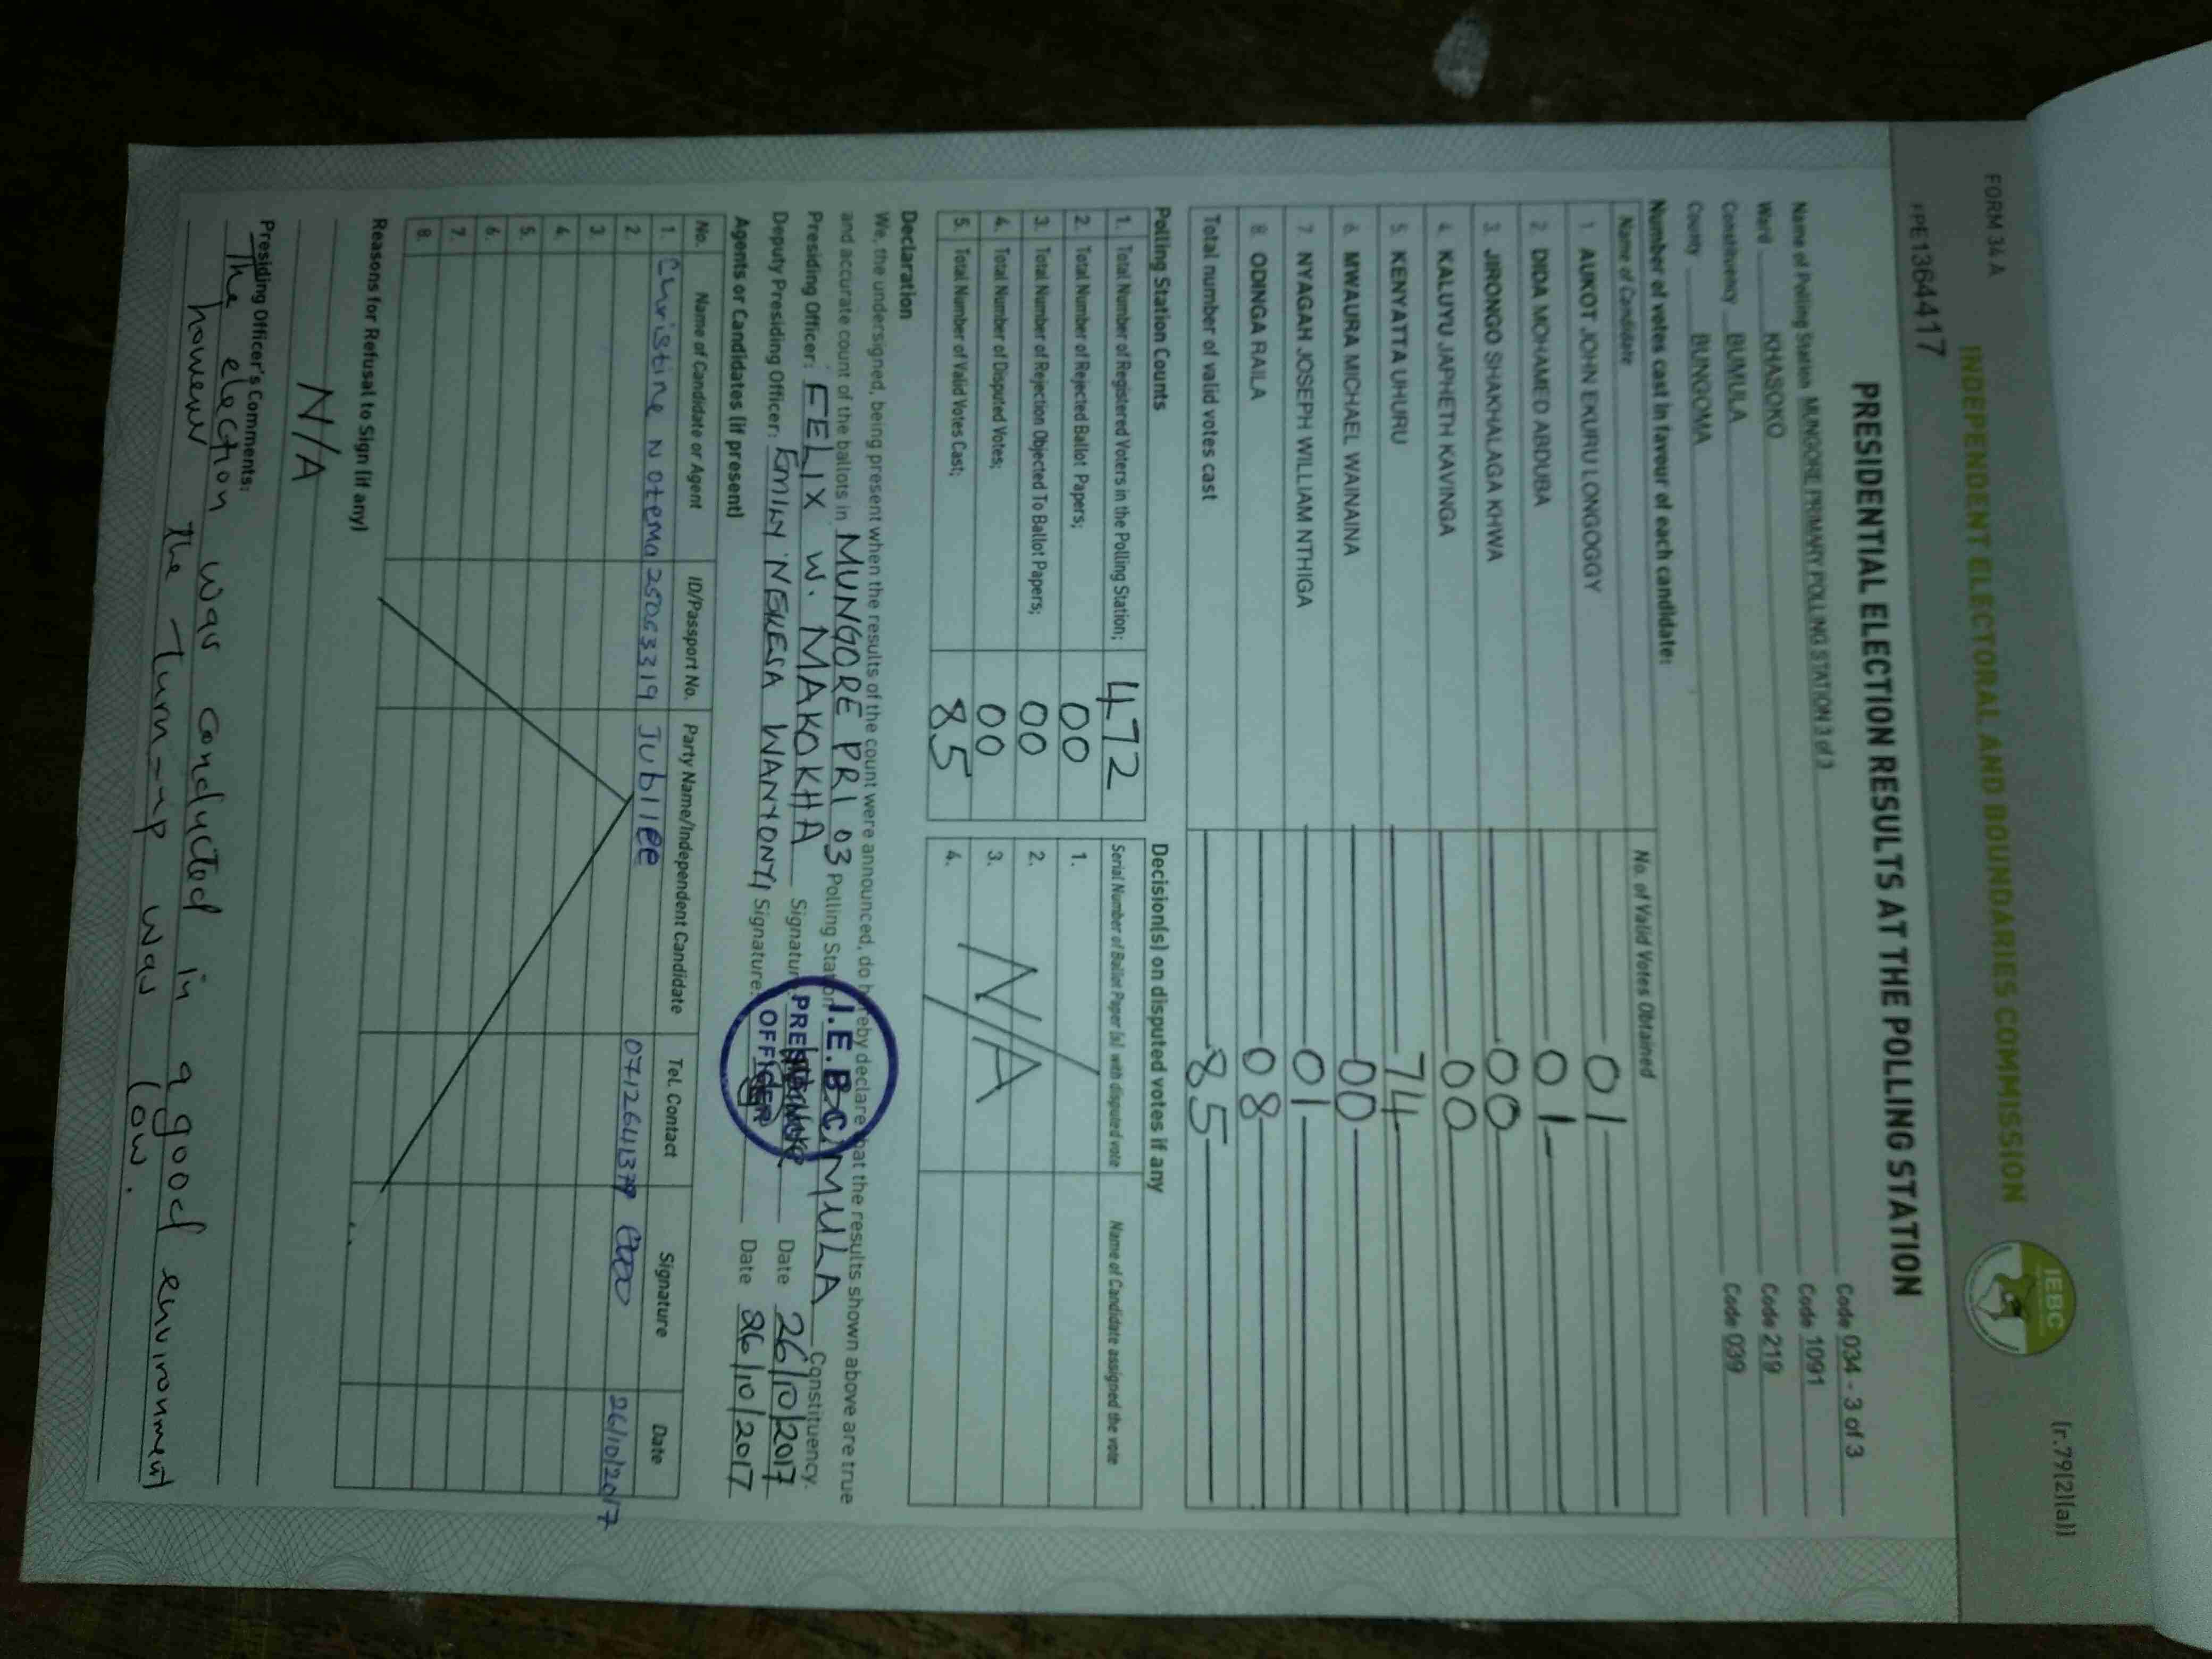 FORM 34 A
[r.79(2)(a)]
INDEPENDENT ELECTORAL AND BOUNDARIES COMMISSION
IEBC
PE1364417
PRESIDENTIAL ELECTION RESULTS AT THE POLLING STATION
Name of Polling Station MUNGORE PRIMARY POLLING STATION 3 of 3 Code 034 - 3 of 3
Ward KHASOKO Code 1091
Constituency BUMULA Code 219
County BUNGOMA Code 039
Number of votes cast in favour of each candidate:
Name of Candidate No. of Valid Votes Obtained
1. AUKOT JOHN EKURU LONGOGGY 01
2. DIDA MOHAMED ABDUBA 01
3. JIRONGO SHAKHALAGA KHWA 00
4. KALUYU JAPHETH KAVINGA 00
5. KENYATTA UHURU 74
6. MWAURA MICHAEL WAINAINA 00
7. NYAGAH JOSEPH WILLIAM NTHIGA 01
8. ODINGA RAILA 08
Total number of valid votes cast 85
Polling Station Counts
1. Total Number of Registered Voters in the Polling Station; 472
2. Total Number of Rejected Ballot Papers; 00
3. Total Number of Rejection Objected To Ballot Papers; 00
4. Total Number of Disputed Votes; 00
5. Total Number of Valid Votes Cast; 85
Decision(s) on disputed votes if any
Serial Number of Ballot Paper (s) with disputed vote Name of Candidate assigned the vote
1.
2.
3.
4.
N/A
Declaration
We, the undersigned, being present when the results of the count were announced, do hereby declare that the results shown above are true
and accurate count of the ballots in MUNGORE PRI 03 Polling Station BUMULA Constituency.
Presiding Officer: FELIX W. MAKOKHA Signature: Date 26/10/2017
Deputy Presiding Officer: EMILY NEKESA WANYONYI Signature: Date 26/10/2017
I.E.B.C
PRESIDING
OFFICER
Agents or Candidates (if present)
No. Name of Candidate or Agent ID/Passport No. Party Name/Independent Candidate Tel. Contact Signature Date
1. Christine N Otema 25063319 Jubilee 0712641379 26/10/2017
2.
3.
4.
5.
6.
7.
8.
Reasons for Refusal to Sign (if any)
N/A
Presiding Officer's Comments:
The election was conducted in a good environment
however the turn-up was low.